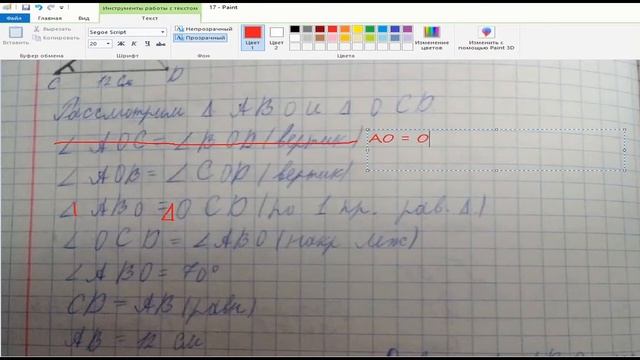 Инструменты работы с текстом
17 - Paint
Файл
Главная
Вид
Текст
Вырезать
Копировать
Вставить
Буфер обмена
Segoe Script
20
Шрифт
Непрозрачный
Прозрачный
Фон
Цвет 1
Цвет 2
Цвета
Изменение цветов
Изменить с помощью Paint 3D
C 12 см D
Рассмотрим Δ ABO и Δ OCD
∠ AOC = ∠ BOD (вертик)
AO = O
∠ AOB = ∠ COD (вертик)
Δ ABO = Δ OCD (по 1 пр. рав. Δ.)
∠ OCD = ∠ ABO (накр леж)
∠ ABO = 70°
CD = AB (равн)
AB = 12 см